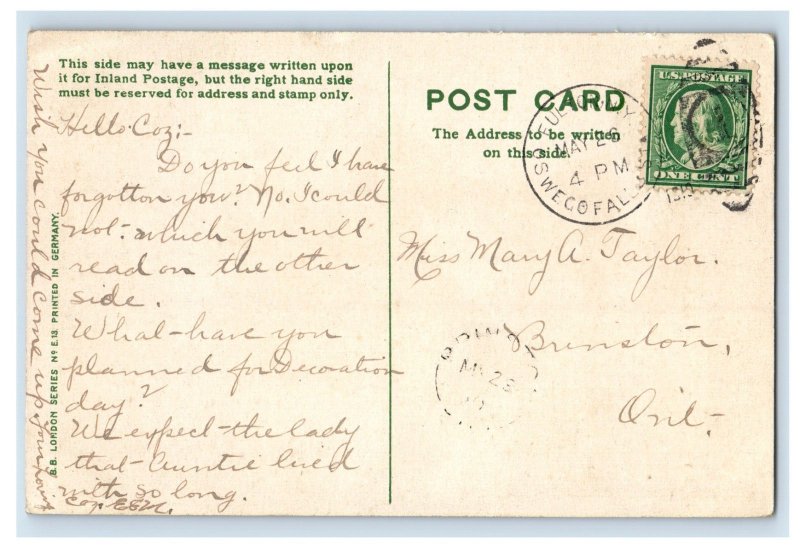 This side may have a message written upon
it for Inland Postage, but the right hand side
must be reserved for address and stamp only.
Hello Coz;-
Do you feel I have
forgotton you? No. I could
not- which you will
read on the other
side.
What- have you
planned for Decoration
day?
We expect- the lady
that- Auntie lived
with so long.
Coz. E.E.M.
Wish you could come up
B.B. LONDON SERIES No E.13. PRINTED IN GERMANY.
POST CARD
The Address to be written
on this side.
MAY 26
4 PM
OSWEGO FALL
U.S. POSTAGE
ONE CENT
Miss Mary A. Taylor.
Brinston,
Ont-